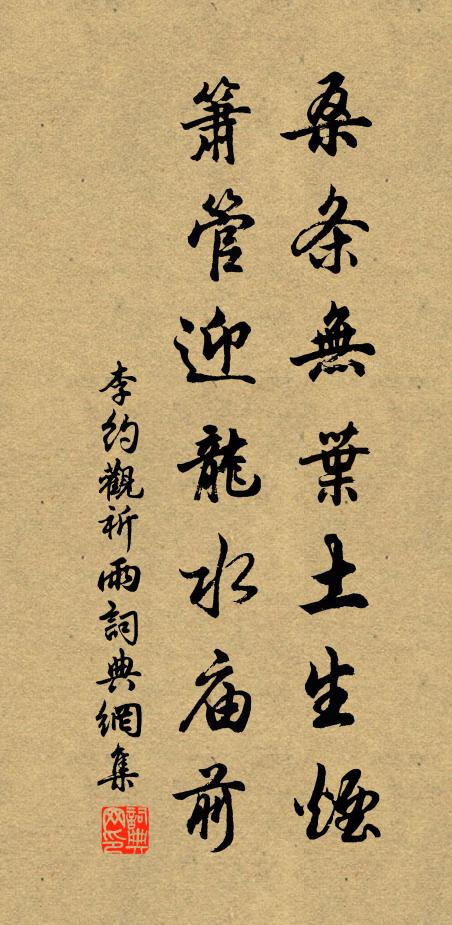 桑条無葉土生煙
簫管迎龍水庙前
李約觀祈雨詞典網集
詞典网印